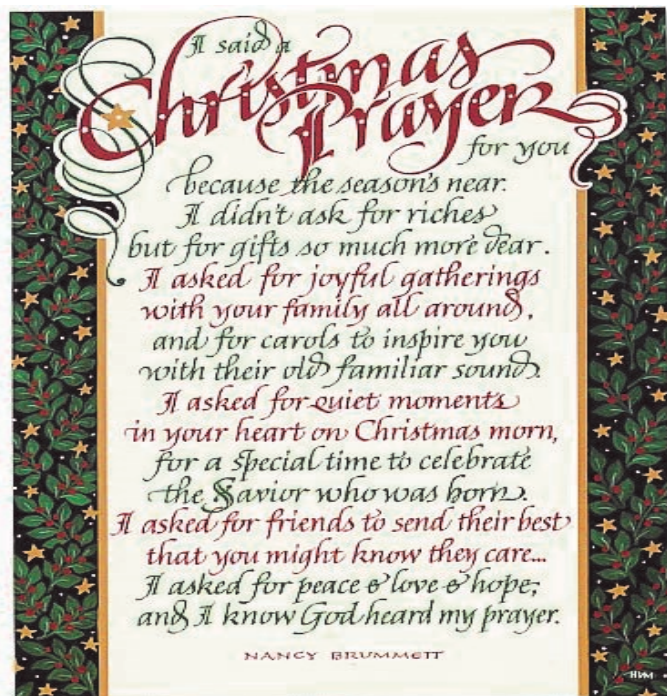 I said a
Christmas
Prayer
for you
because the season's near.
I didn't ask for riches
but for gifts so much more dear.
I asked for joyful gatherings
with your family all around,
and for carols to inspire you
with their old familiar sound.
I asked for quiet moments
in your heart on Christmas morn,
for a special time to celebrate
the Savior who was born.
I asked for friends to send their best
that you might know they care...
I asked for peace & love & hope;
and I know God heard my prayer.
NANCY BRUMMETT
HVM